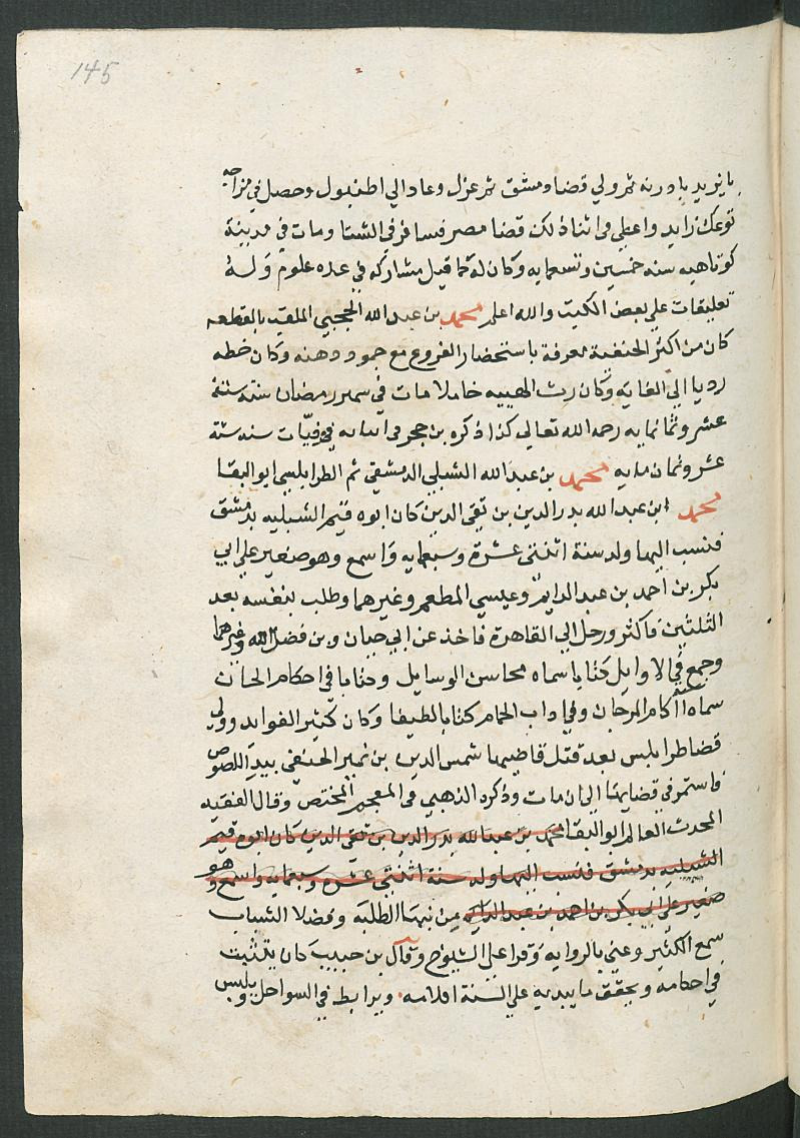 145
بايزيد بادرنه ثم ولي قضا دمشق ثم عزل وعاد الي اصطنبول وحصل في مزاجه
توعك زايد واعطي في اثنا ذلك قضا مصر فسافر في الشتا ومات في مدينة
كوتاهيه سنه خمسين وتسعمايه وكان له كما قيل مشاركه في عده علوم وله
تعليقات علي بعض الكتب والله اعلم محمد بن عبد الله الججيني الملقب بالقطعه
كان من اكثر الحنفية معرفة باستحضار الفروع مع جمود ذهنه وكان خطه
رديا الي الغايه وكان رث الهييه خاملا مات في شهر رمضان سنة ستة
عشر وثمانمايه رحمه الله تعالي كذا ذكره بن حجر في انبايه في وفيات سنه ستة
عشر وثمان مايه محمد بن عبد الله الشبلي الدمشقي ثم الطرابلسي ابو البقا
محمد ابن عبد الله بدر الدين بن تقي الدين كان ابوه قيم الشبليه بدمشق
فنسب اليها ولد سنة اثنتي عشرة وسبعمايه واسمع وهو صغير علي ابي
بكر بن احمد بن عبد الدايم وعيسي المطعم وغيرهما وطلب بنفسه بعد
الثلثين فاكثر ورحل الي القاهرة فاخذ عن ابي حيان وبن فضل الله وغيرهما
وجمع في الاوايل كتابا سماه محاسن الوسايل وكتابا في احكام الجان
سماه آكام المرجان وفي اداب الحمام كتابا لطيفا وكان كثير الفوايد وولي
قضا طرابلس بعد قتل قاضيها شمس الدين بن نمير الحنفي بيد اللصوص
واستمر في قضايها الي ان مات وذكره الذهبي في المعجم المختص وقال الفقيه
المحدث العالم ابو البقا محمد بن عبد الله بدر الدين بن تقي الدين كان ابوه قيم
الشبليه بدمشق فنسب اليها ولد سنة اثنتي عشرة وسبعمايه واسمع وهو
صغير علي ابي بكر بن احمد بن عبد الدايم من نبها الطلبه وفضلا الشباب
سمع الكثير وعني بالروايه وقرا علي الشيوخ وقال بن حبيب كان يتثبت
في احكامه ويحقق ما يبديه علي السنة اقلامه ويرابط في السواحل ويلبس